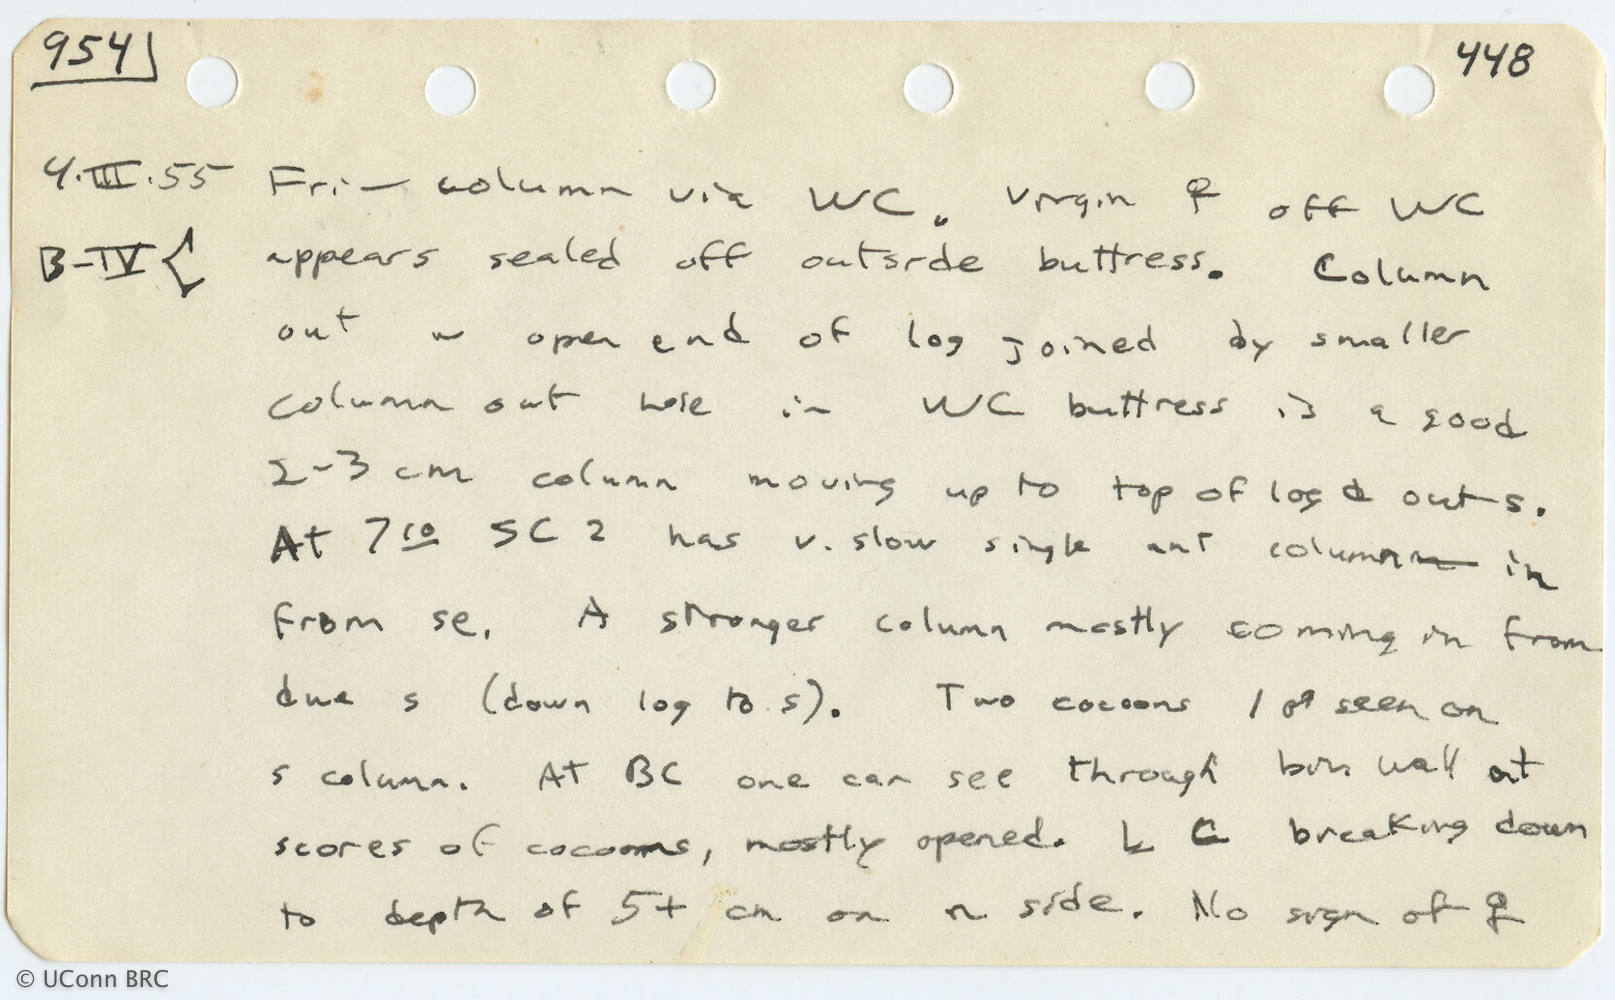 954 448
4.III.55 Fri— column via WC. Virgin ♀ off WC
B-IV appears sealed off outside buttress. Column
out w open end of log joined by smaller
column out hole in WC buttress is a good
2-3 cm column moving up to top of log & out s.
At 7 10 SC 2 has v. slow single ant column in
from se. A stronger column mostly coming in from
due s (down log to s). Two cocoons 1st seen on
s column. At BC one can see through biv wall at
scores of cocoons, mostly opened. L C breaking down
to depth of 5+ cm on n side. No sign of ♀
© UConn BRC